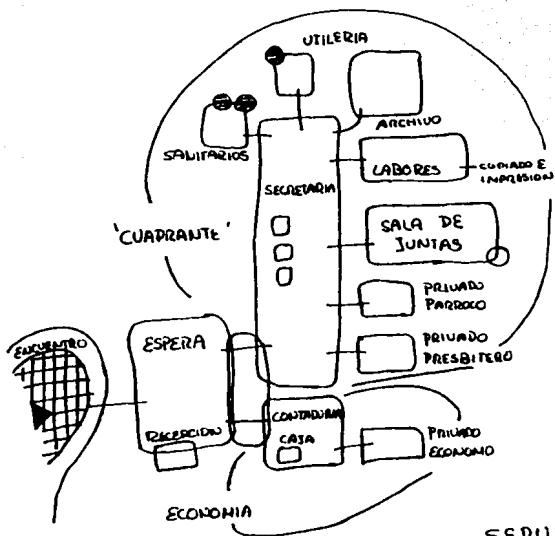 UTILERIA
ARCHIVO
SANITARIOS
SECRETARIA
LABORES
COPIADO E
IMPRESION
'CUADRANTE'
SALA DE
JUNTAS
PRIVADO
PARROCO
ENCUENTRO
ESPERA
PRIVADO
PRESBITERO
RECEPCION
CONTADURIA
CAJA
PRIVADO
ECONOMO
ECONOMIA